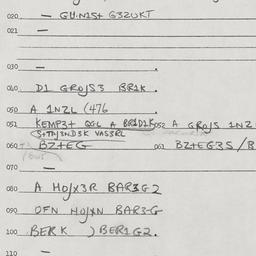 020 — GUN1S+ G3ZUKT
021 —
030 — .
040 D1 GROJS3 BR1K .
050 A 1NZL (476
051 KEMP3+ A BR1D1K 052 A GROJS 1NZ
S+TNJ3ND3K VAS3RL
060 BZ+EG 061 BZ+EG3S / B
070 —
080 A HOJX3R BAR3G2
090 OFN HOJXN BAR3G
100 BERK ) BER1G2.
110 —